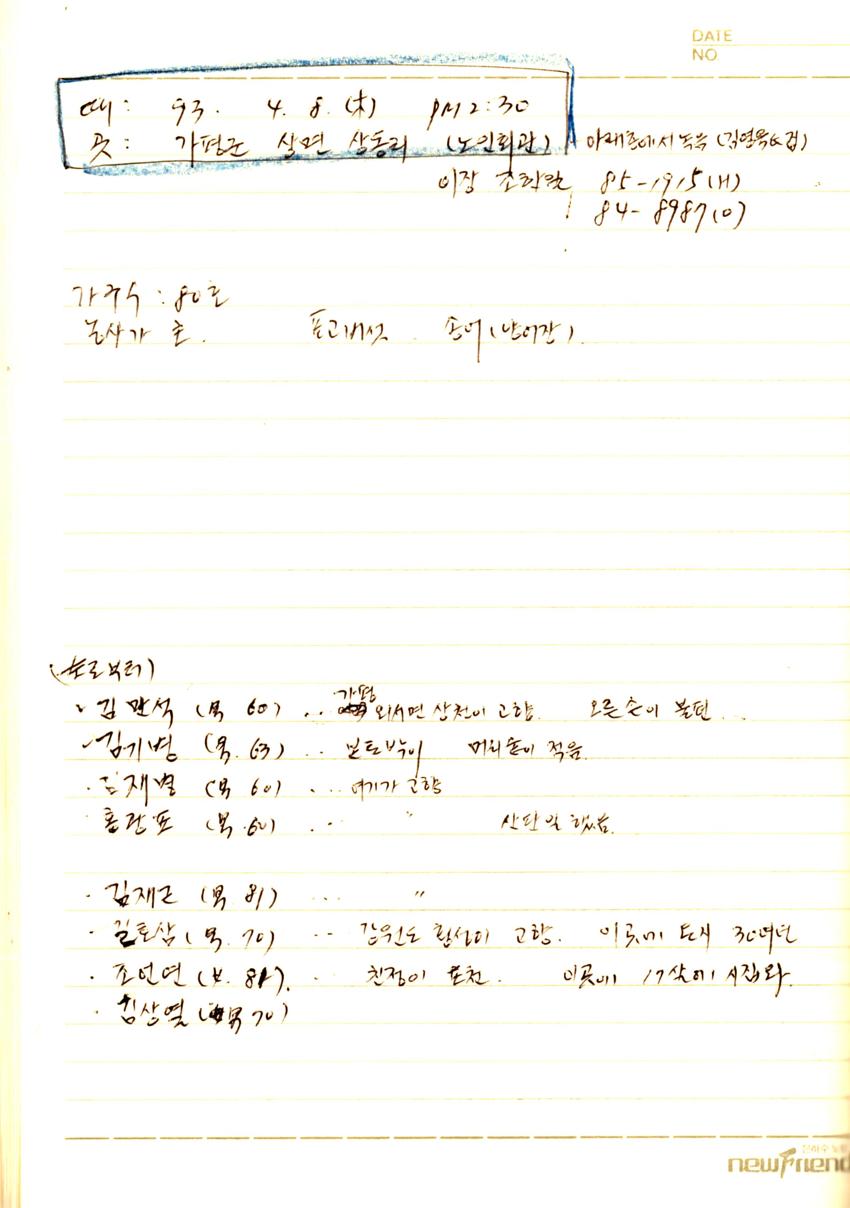 DATE
NO
때 : 93. 4. 8. (木) PM 2:30
곳 : 가평군 상면 상동리 (노인회관) 아래층에서 녹음 (김영욱
이장 조학원 85-1915(H)
84-8987(O)
가구수 : 80호
농사가 主. 표고버섯 송어(난이장).
(남로부터)
김만석 (男 60) … 가평 외서면 삼천이 고향. 오른손이 불편…
김기병 (男. 63) … 본토박이 머리숱이 적음.
김재열 (男 60) … 여기가 고향
홍관표 (男. 60) … 〃 산판일 했음.
· 김재근 (男 81) … 〃
· 길호삼 (男. 70) … 강원도 횡성이 고향. 이곳에 30여년
· 조언연 (女. 81). … 친정이 포천. 이곳에 17살에 시집와.
· 김상열 (男 70)
newFriend